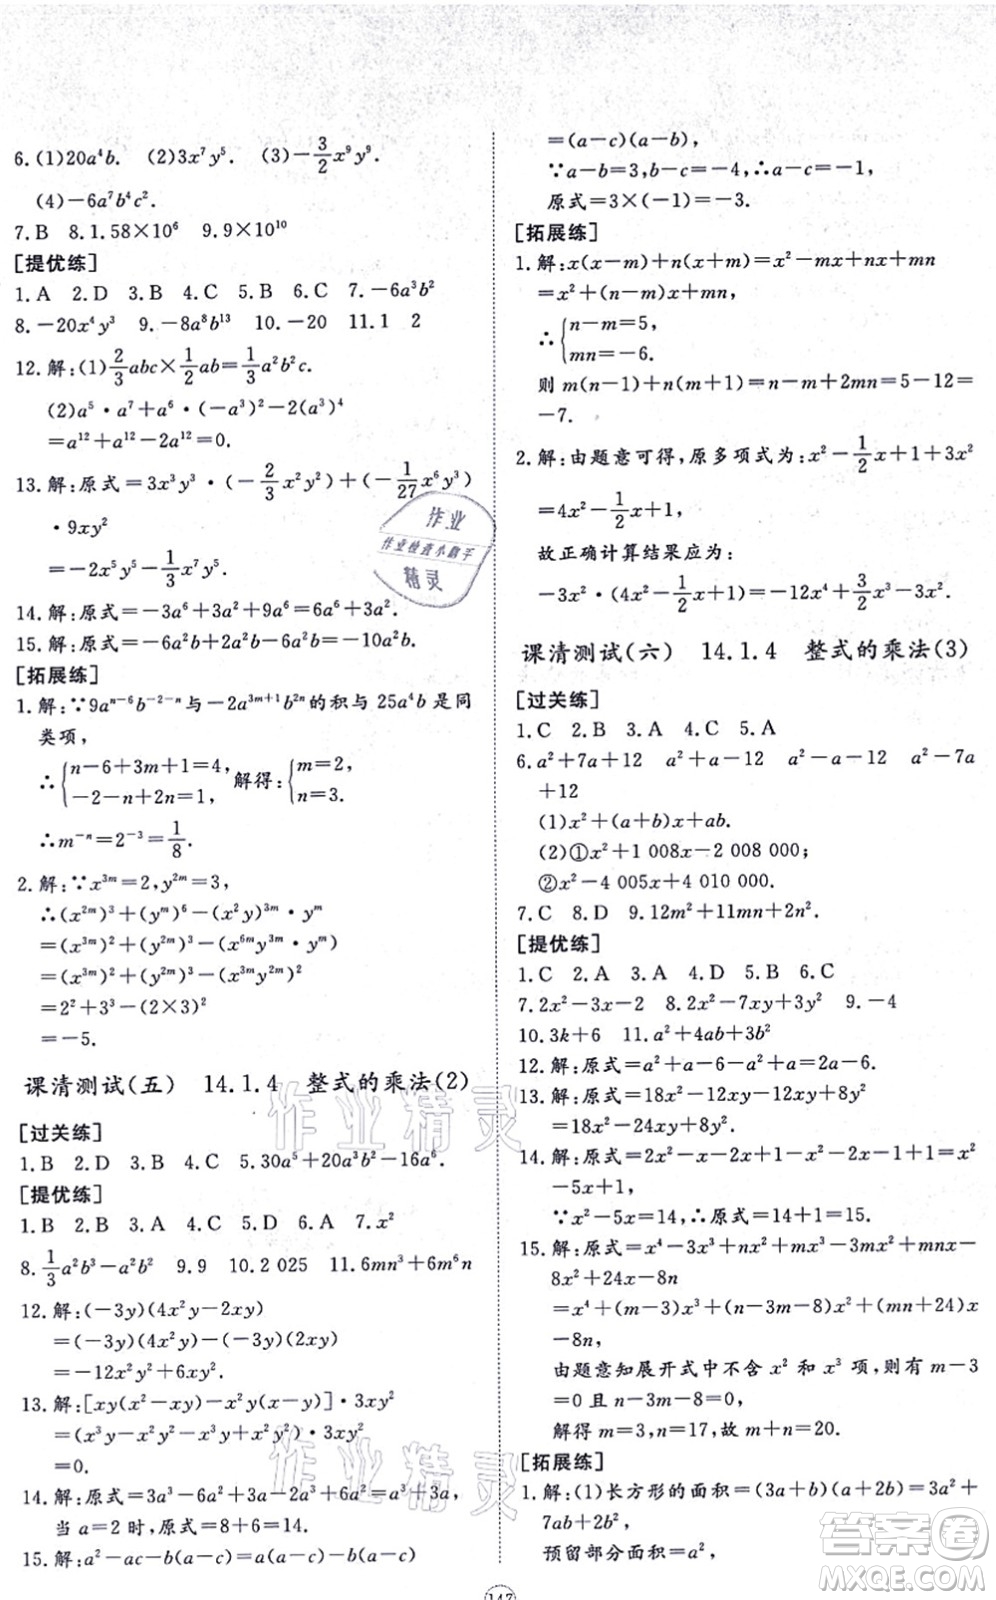 6.(1)20a⁴b. (2)3x⁷y⁵. (3)−3/2x⁹y⁹.
(4)−6a⁷b⁴c².
7.B 8.1.58×10⁶ 9.9×10¹⁰
[提优练]
1.A 2.D 3.B 4.C 5.B 6.C 7.−6a³b²
8.−20x⁴y³ 9.−8a⁸b¹³ 10.−20 11.1 2
12.解:(1)2/3abc×1/2ab=1/3a²b²c.
(2)a⁵·a⁷+a⁶·(−a³)²−2(a³)⁴
=a¹²+a¹²−2a¹²=0.
13.解:原式=3x³y³·(−2/3x²y²)+(−1/27x⁶y³)
·9xy²
=−2x⁵y⁵−1/3x⁷y⁵.
14.解:原式=−3a⁶+3a²+9a⁶=6a⁶+3a².
15.解:原式=−6a²b+2a²b−6a²b=−10a²b.
[拓展练]
1.解:∵9aⁿ⁻⁶b⁻²⁻ⁿ与−2a³ᵐ⁺¹b²ⁿ的积与25a⁴b是同
类项,
∴{n−6+3m+1=4, 解得:{m=2,
−2−n+2n=1. n=3.
∴m⁻ⁿ=2⁻³=1/8.
2.解:∵x³ᵐ=2,y²ᵐ=3,
∴(x²ᵐ)³+(yᵐ)⁶−(x²y)³ᵐ·yᵐ
=(x³ᵐ)²+(y²ᵐ)³−(x⁶ᵐy³ᵐ·yᵐ)
=(x³ᵐ)²+(y²ᵐ)³−(x³ᵐy²ᵐ)²
=2²+3³−(2×3)²
=−5.
课清测试(五) 14.1.4 整式的乘法(2)
[过关练]
1.B 2.D 3.B 4.C 5.30a⁵+20a³b²−16a⁶.
[提优练]
1.B 2.B 3.A 4.C 5.D 6.A 7.x²
8.1/3a²b³−a²b² 9.9 10.2 025 11.4mn³+6m²n
12.解:(−3y)(4x²y−2xy)
=(−3y)(4x²y)−(−3y)(2xy)
=−12x²y²+6xy².
13.解:[xy(x²−xy)−x²y(x−y)]·3xy²
=(x³y−x²y²−x³y+x²y²)·3xy²
=0.
14.解:原式=3a³−6a²+3a−2a³+6a²=a³+3a,
当a=2时,原式=8+6=14.
15.解:a²−ac−b(a−c)=a(a−c)−b(a−c)
=(a−c)(a−b),
∵a−b=3,b−c=−4,∴a−c=−1,
原式=3×(−1)=−3.
[拓展练]
1.解:x(x−m)+n(x+m)=x²−mx+nx+mn
=x²+(n−m)x+mn,
∴{n−m=5,
mn=−6.
则m(n−1)+n(m+1)=n−m+2mn=5−12=
−7.
2.解:由题意可得,原多项式为:x²−1/2x+1+3x²
=4x²−1/2x+1,
故正确计算结果应为:
−3x²·(4x²−1/2x+1)=−12x⁴+3/2x³−3x².
课清测试(六) 14.1.4 整式的乘法(3)
[过关练]
1.C 2.B 3.A 4.C 5.A
6.a²+7a+12 a²−a−12 a²+a−12 a²−7a
+12
(1)x²+(a+b)x+ab.
(2)①x²+1 008x−2 008 000;
②x²−4 005x+4 010 000.
7.C 8.D 9.12m²+11mn+2n².
[提优练]
1.C 2.A 3.A 4.D 5.B 6.C
7.2x²−3x−2 8.2x²−7xy+3y² 9.−4
10.3k+6 11.a²+4ab+3b²
12.解:原式=a²+a−6−a²−a=−6.
13.解:原式=18x²−12xy+12xy−8y²
=18x²−8y².
14.解:原式=2x²−x−2x+1−x²−2x=x²
−5x+1,
∵x²−5x=14,∴原式=14+1=15.
15.解:原式=x⁴−3x³+nx²+mx³−3mx²+mnx−
8x²+24x−8n
=x⁴+(m−3)x³+(n−3m−8)x²+(mn+24)x
−8n,
由题意知展开式中不含x²和x³项,则有m−3
=0且n−3m−8=0,
解得m=3,n=17,故m+n=20.
[拓展练]
1.解:(1)长方形的面积=(3a+b)(a+2b)=3a²+
7ab+2b²,
预留部分面积=a²,
147
作业
作业检查小帮手
精灵
作业精灵
作业精灵
答案圈
MXQE.COM